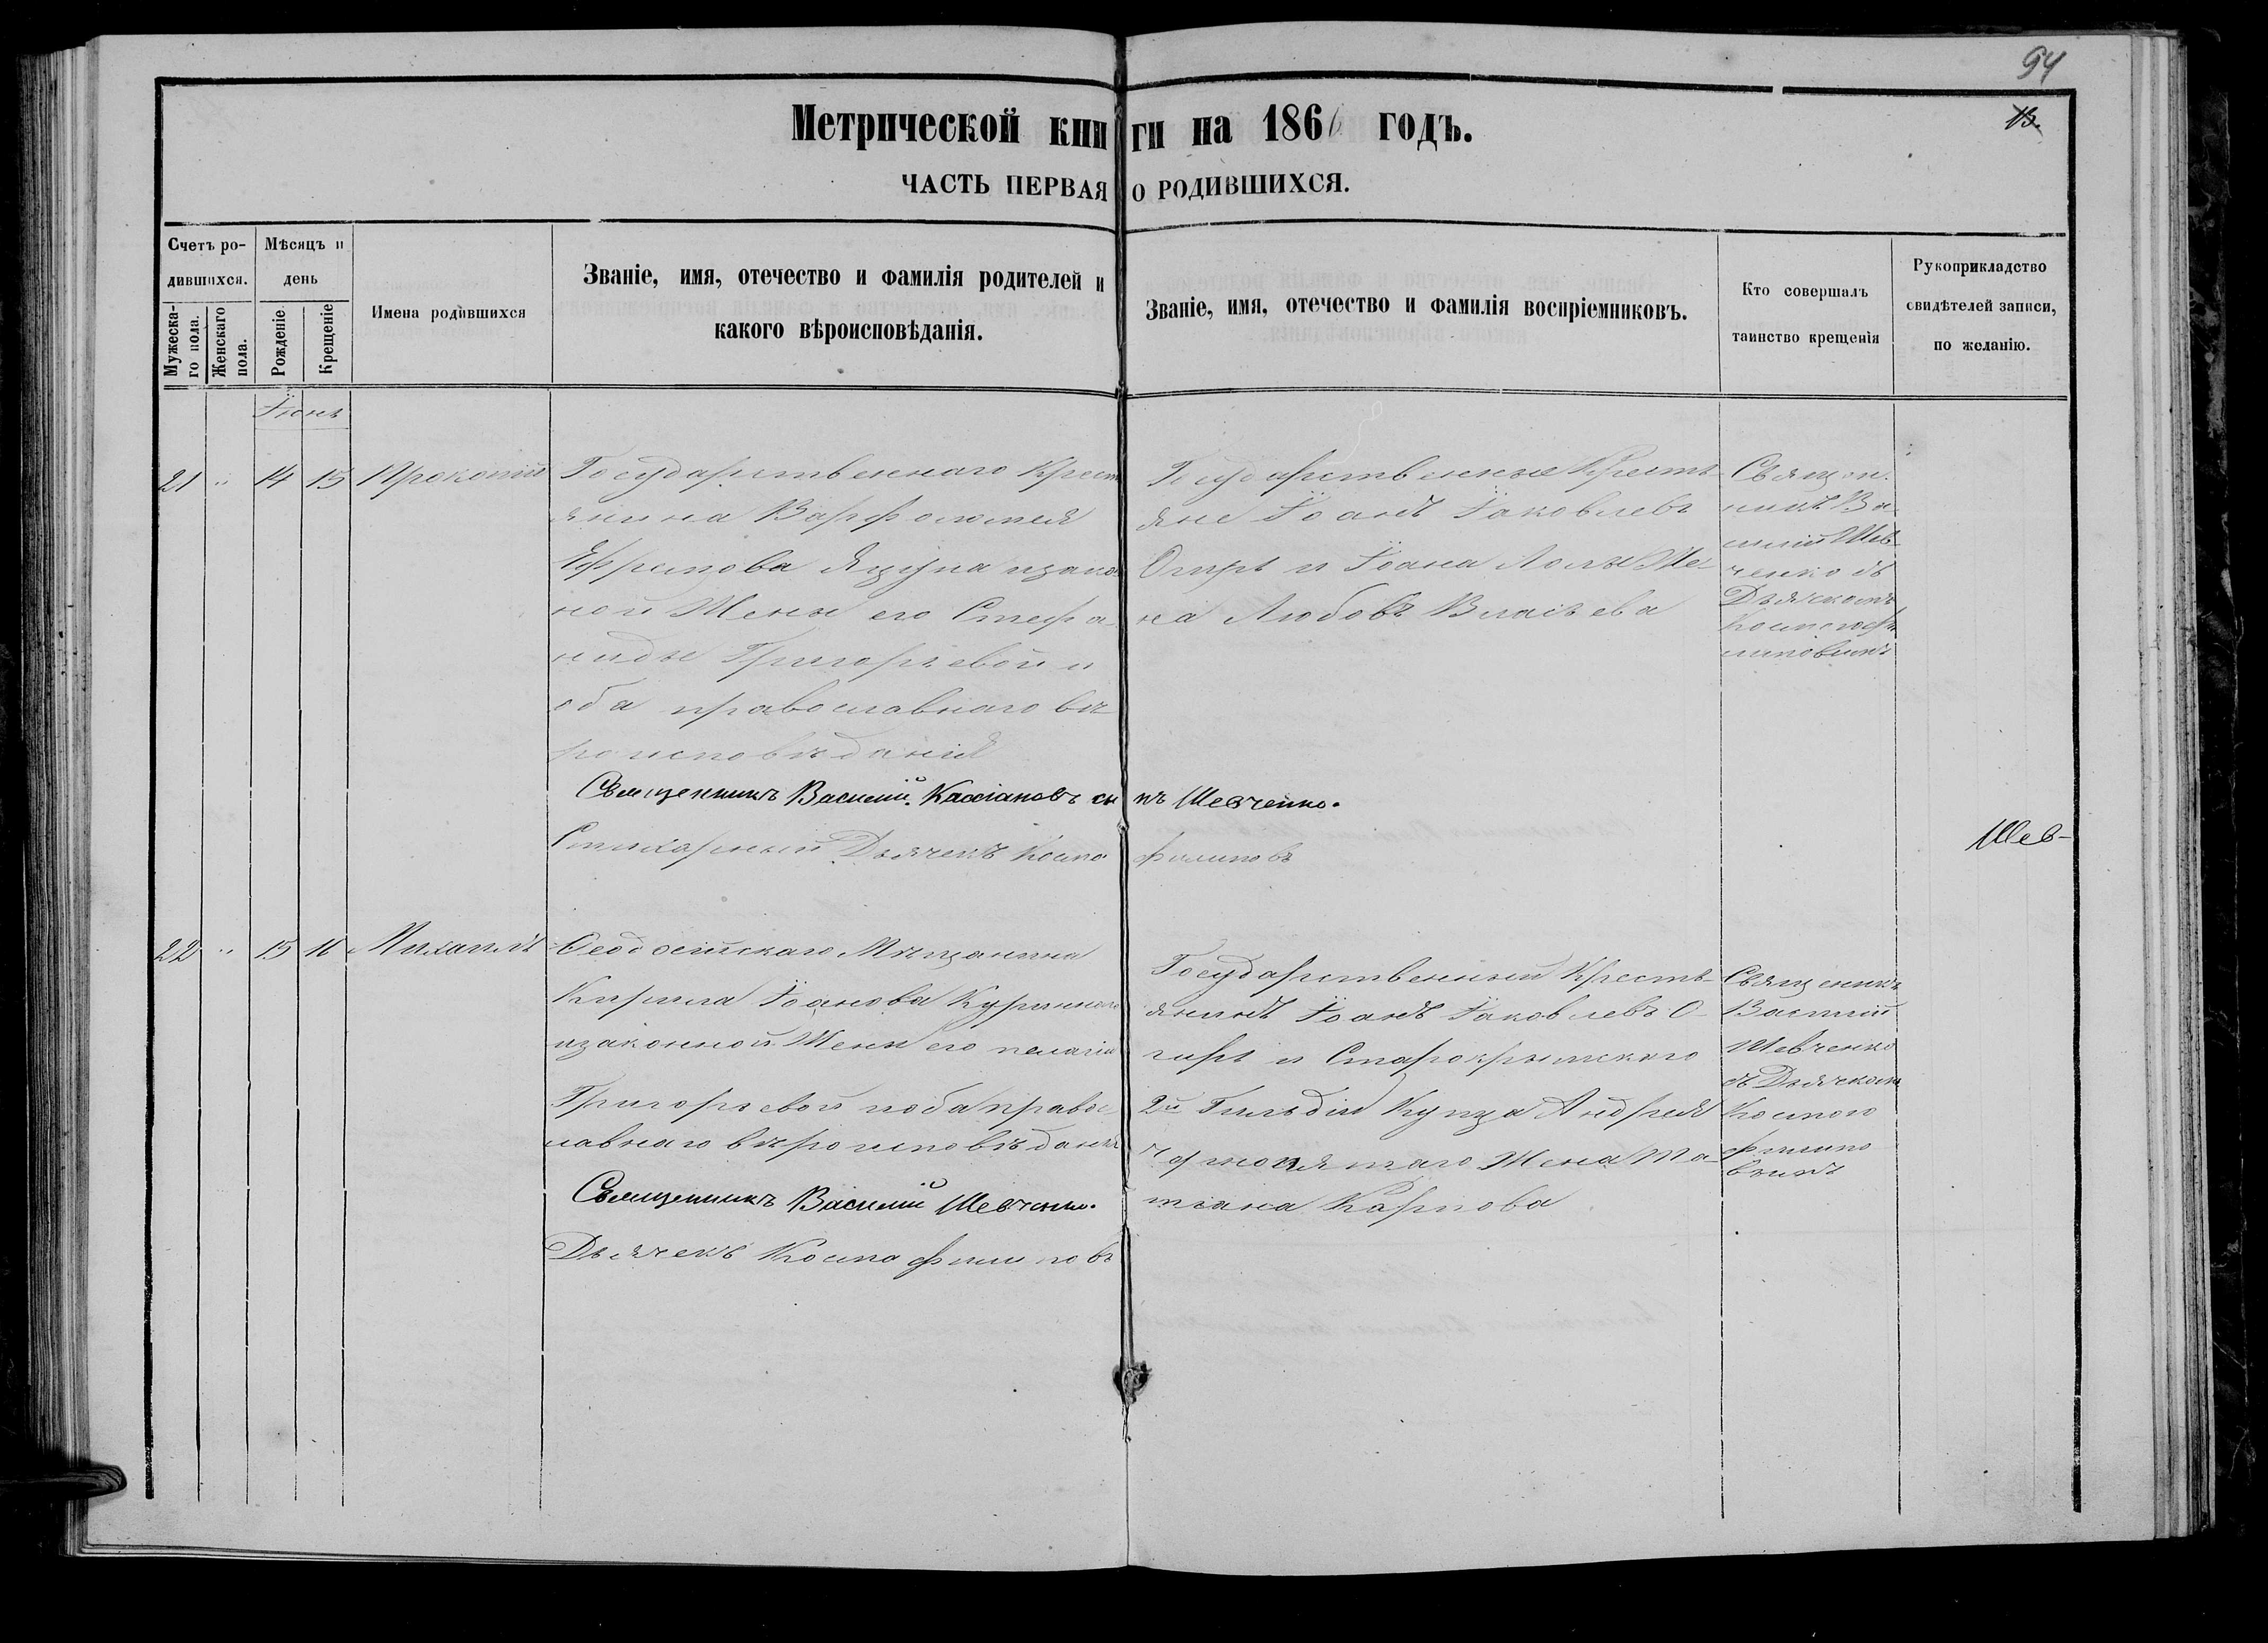 94
13.
Метрической книги на 1866 годъ.
ЧАСТЬ ПЕРВАЯ О РОДИВШИХСЯ.
Счетъ ро-
дившихся.
Мужеска-
го пола.
Женскаго
пола.
Мѣсяцъ и
день
Рожденіе
Крещеніе
Имена родившихся
Званіе, имя, отечество и фамилія родителей и
какого вѣроисповѣданія.
Званіе, имя, отечество и фамилія воспріемниковъ.
Кто совершалъ
таинство крещенія
Рукоприкладство
свидѣтелей записи,
по желанію.
Іюнь
21 " 14 15 Прокопій
Государственнаго Крест
янина Варфоломея
Ефремова Яцуна изако
ной Жены его Стефа-
ниды Григорьевой и
оба православнаго вѣ-
роисповѣданія
Государственные Кресть-
яне Іоанъ Іаковлевъ
Огирь и Іоана Ломы Же-
на Любовъ Власьева
Священ-
никъ Ва-
силій Шев-
ченко съ
Дьячкомъ
Космою Фи
липовымъ
Священникъ Василій Кассіановъ сынъ Шевченко.
Стихарный Дьячекъ Косма Филиповъ
Шев-
22 " 15 16 Михаилъ
Ѳеодосійскаго Мѣщанина
Кирила Іоанова Курит
изаконной Жены его пелагіи
Григорьевой иоба правос
лавнаго вѣроисповѣданія
Государственный Кресть-
янинъ Іоанъ Іаковлевъ О-
гирь и Старокрымскаго
2й Гильдіи Купца Андрея
Жена Та-
тіана Карпова
Священикъ
Василій
Шевченко
съ Дьячкомъ
Космою
Филипо
вымъ
Священникъ Василій Шевченко.
Дьячекъ Косма Филиповъ